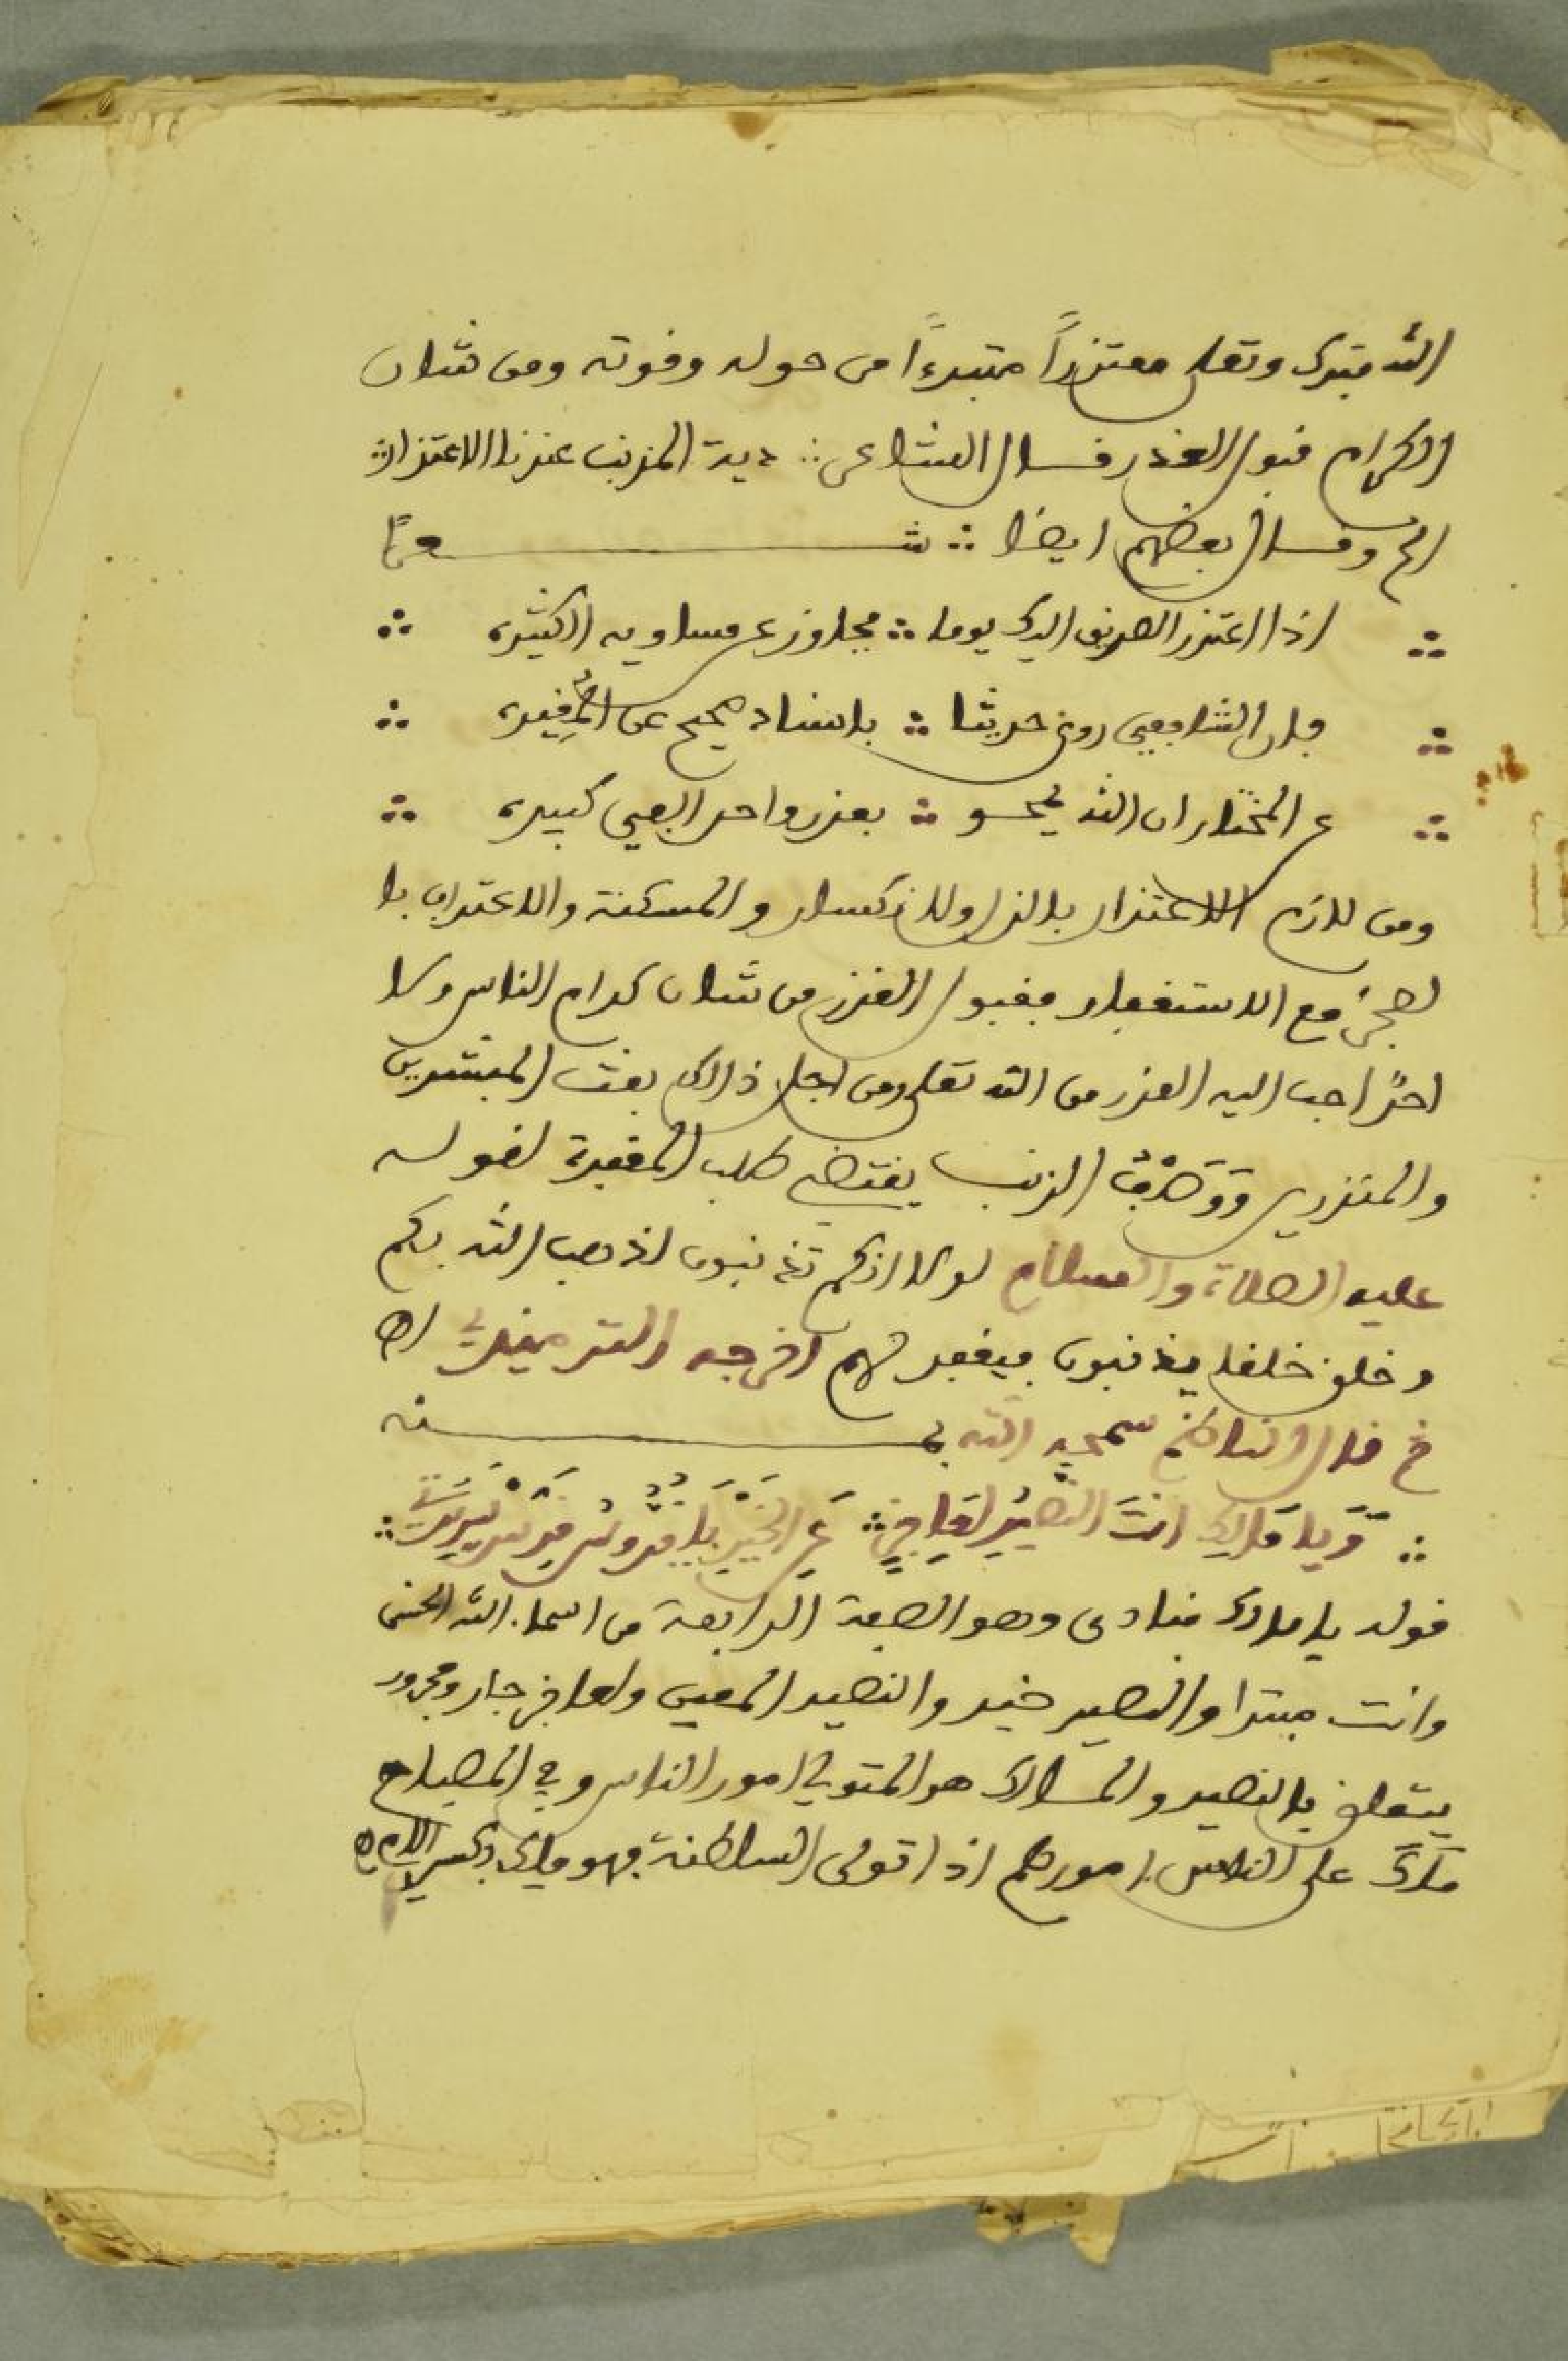 الله تبرك وتعلى معتذراً متبرءاً من حوله وقوته ومن شان
الكرام قبول العذر قال الشاعر ∴ دية الذنب عندنا الاعتذار ∴
الخ وقال بعضهم ايضا ∴ شعرًا
∴ اذا اعتذر الصديق اليك يوما ∴ تجاوز عن مساويه الكثيره ∴
∴ فان الشافعي روى حديثا ∴ باسناد صحيح عن المُغِيره ∴
∴ عن المختار ان الله يمحو ∴ بعذر واحد الفي كبيره ∴
ومن لازم الاعتذار بالذل والانكسار والمسكنة والاعتراف با
لعجز مع الاستغفار فقبول العذر من شان كرام الناس ولا
احدٌ احب اليه العذر من الله تعلى ومن اجل ذالك بعث المبشرين
والمنذرين ووَصْفُ الذنب يقتضى طلب المغفرة لقوله
عليه الصلاة والسلام لولا انكم تذنبون لذهب الله بكم
وخلق خلقا يذنبون فيغفر لهم اخرجه الترمذي اه
قال الناظم رحمه الله بمنه
∴ وَيَا مَالِكِ انتَ النَّصِيرُ لعاجزٍ ∴
قوله يا مالك منادى وهو الصفة الرابعة من اسماء الله الحسنى
وانت مبتدا والنصير خبر والنصير المعين ولعاجز جار ومجرور
يتعلق بالنصير والمالك هو المتولى امور الناس وفي المصباح
ملك على الناس امورهم اذا تولى السلطنة فهو ملك بكسر اللام